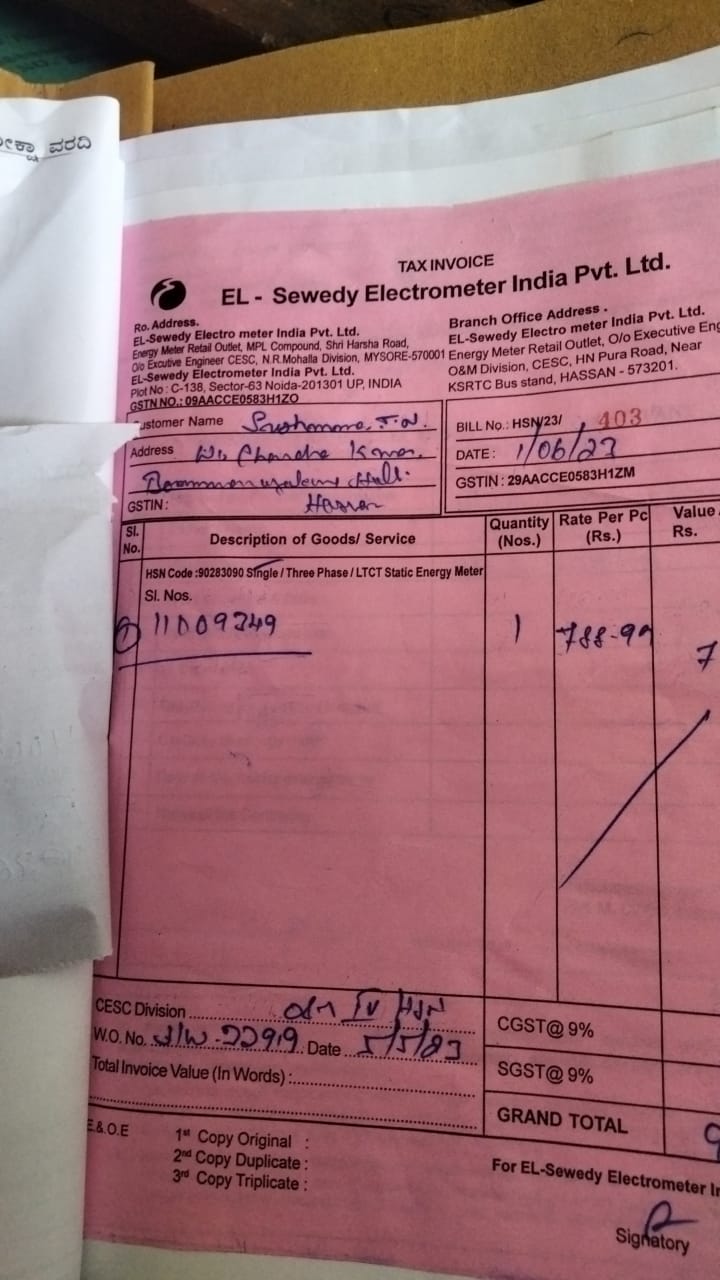 ವರದಿ
TAX INVOICE
EL - Sewedy Electrometer India Pvt. Ltd.
Ro. Address.
EL-Sewedy Electro meter India Pvt. Ltd.
Energy Meter Retail Outlet, MPL Compound, Shri Harsha Road,
O/o Excutive Engineer CESC, N.R.Mohalla Division, MYSORE-570001
EL-Sewedy Electrometer India Pvt. Ltd.
Plot No : C-138, Sector-63 Noida-201301 UP, INDIA
GSTN NO.: 09AACCE0583H1ZO
Branch Office Address .
EL-Sewedy Electro meter India Pvt. Ltd.
Energy Meter Retail Outlet, O/o Executive Eng
O&M Division, CESC, HN Pura Road, Near
KSRTC Bus stand, HASSAN - 573201.
ustomer Name
Address
Hassan
GSTIN :
BILL No.: HSN/23/ 403
DATE : 1/06/23
GSTIN : 29AACCE0583H1ZM
Sl. No. Description of Goods/ Service Quantity (Nos.) Rate Per Pc (Rs.) Value Rs.
HSN Code :90283090 Single / Three Phase / LTCT Static Energy Meter
Sl. Nos.
1 11009349 1 788-90 7
CESC Division HSN
W.O. No. Date
Total Invoice Value (In Words) :
CGST@ 9%
SGST@ 9%
GRAND TOTAL 9
E.&.O.E
1st Copy Original :
2nd Copy Duplicate :
3rd Copy Triplicate :
For EL-Sewedy Electrometer
Signatory